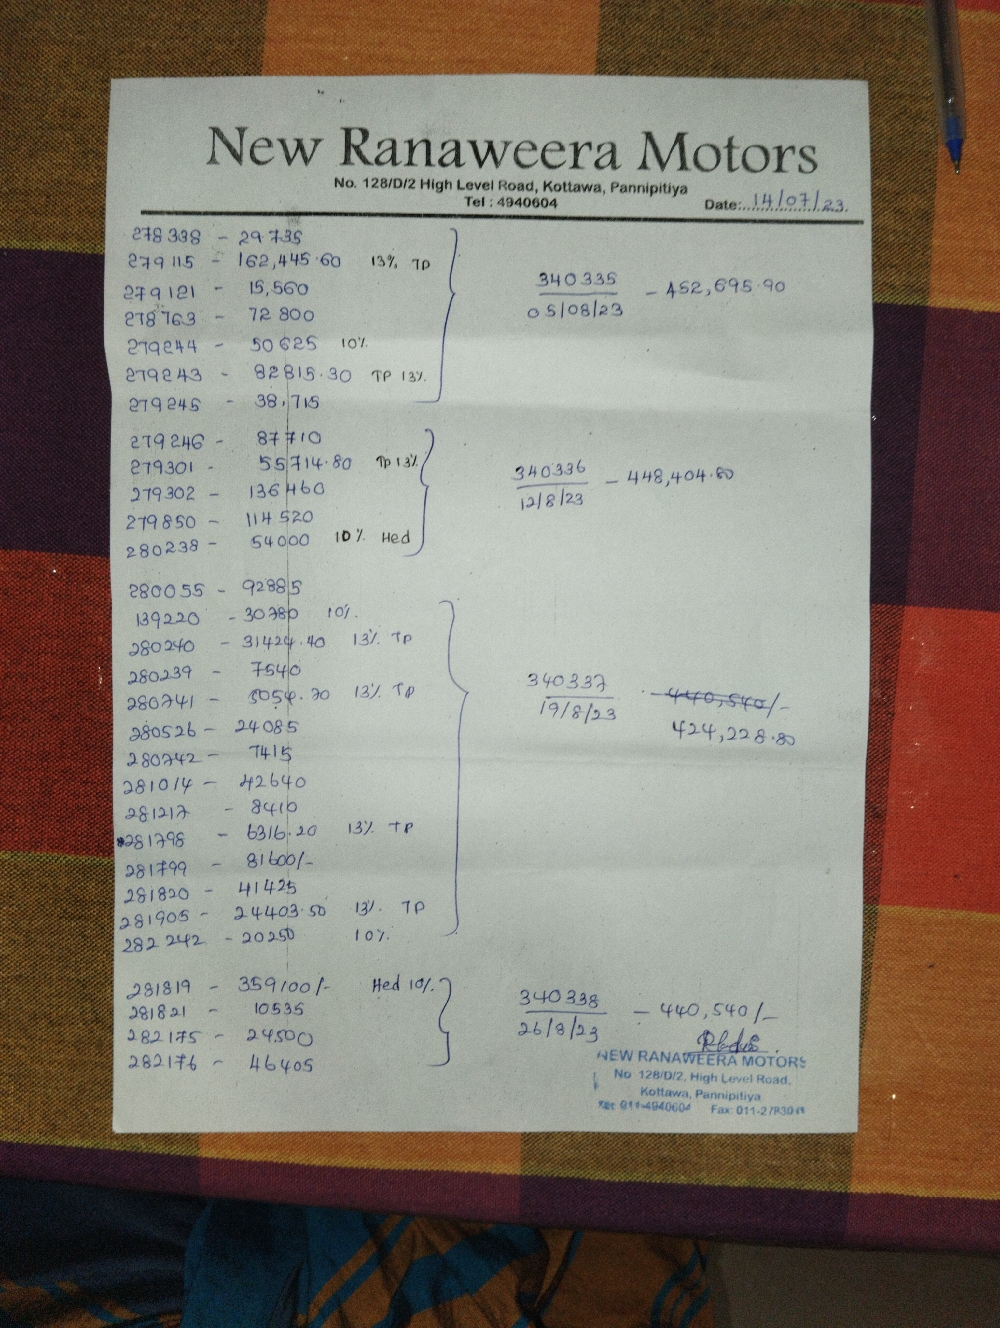 New Ranaweera Motors
No. 128/D/2 High Level Road, Kottawa, Pannipitiya
Tel : 4940604
Date:..14/07/23.
278338 - 29735
279115 - 162,445.60 13% TP
279121 - 15,560
278763 - 72800
279244 - 50625 10%
279243 - 82815.30 TP 13%
279245 - 38,715
340335 - 452,695.90
05/08/23
279246 - 87710
279301 - 55714.80 Tp 13%
279302 - 136460
279850 - 114520
280238 - 54000 10% Hed
340336 - 448,404.80
12/8/23
280055 - 92885
139220 - 30780 10%.
280240 - 31424.40 13% TP
280239 - 7540
280741 - 5054.70 13% TP
280526 - 24085
280742 - 7415
281014 - 42640
281217 - 8410
281798 - 6316.20 13% TP
281799 - 81600/-
281820 - 41425
281905 - 24403.50 13% TP
282242 - 20250 10%.
340337 - 440,540/-
19/8/23 424,228.80
281819 - 359100/- Hed 10%.
281821 - 10535
282175 - 24500
282176 - 46405
340338 - 440,540/-
26/8/23
NEW RANAWEERA MOTORS
No 128/D/2, High Level Road,
Kottawa, Pannipitiya
Tel: 011-4940604 Fax: 011-27830